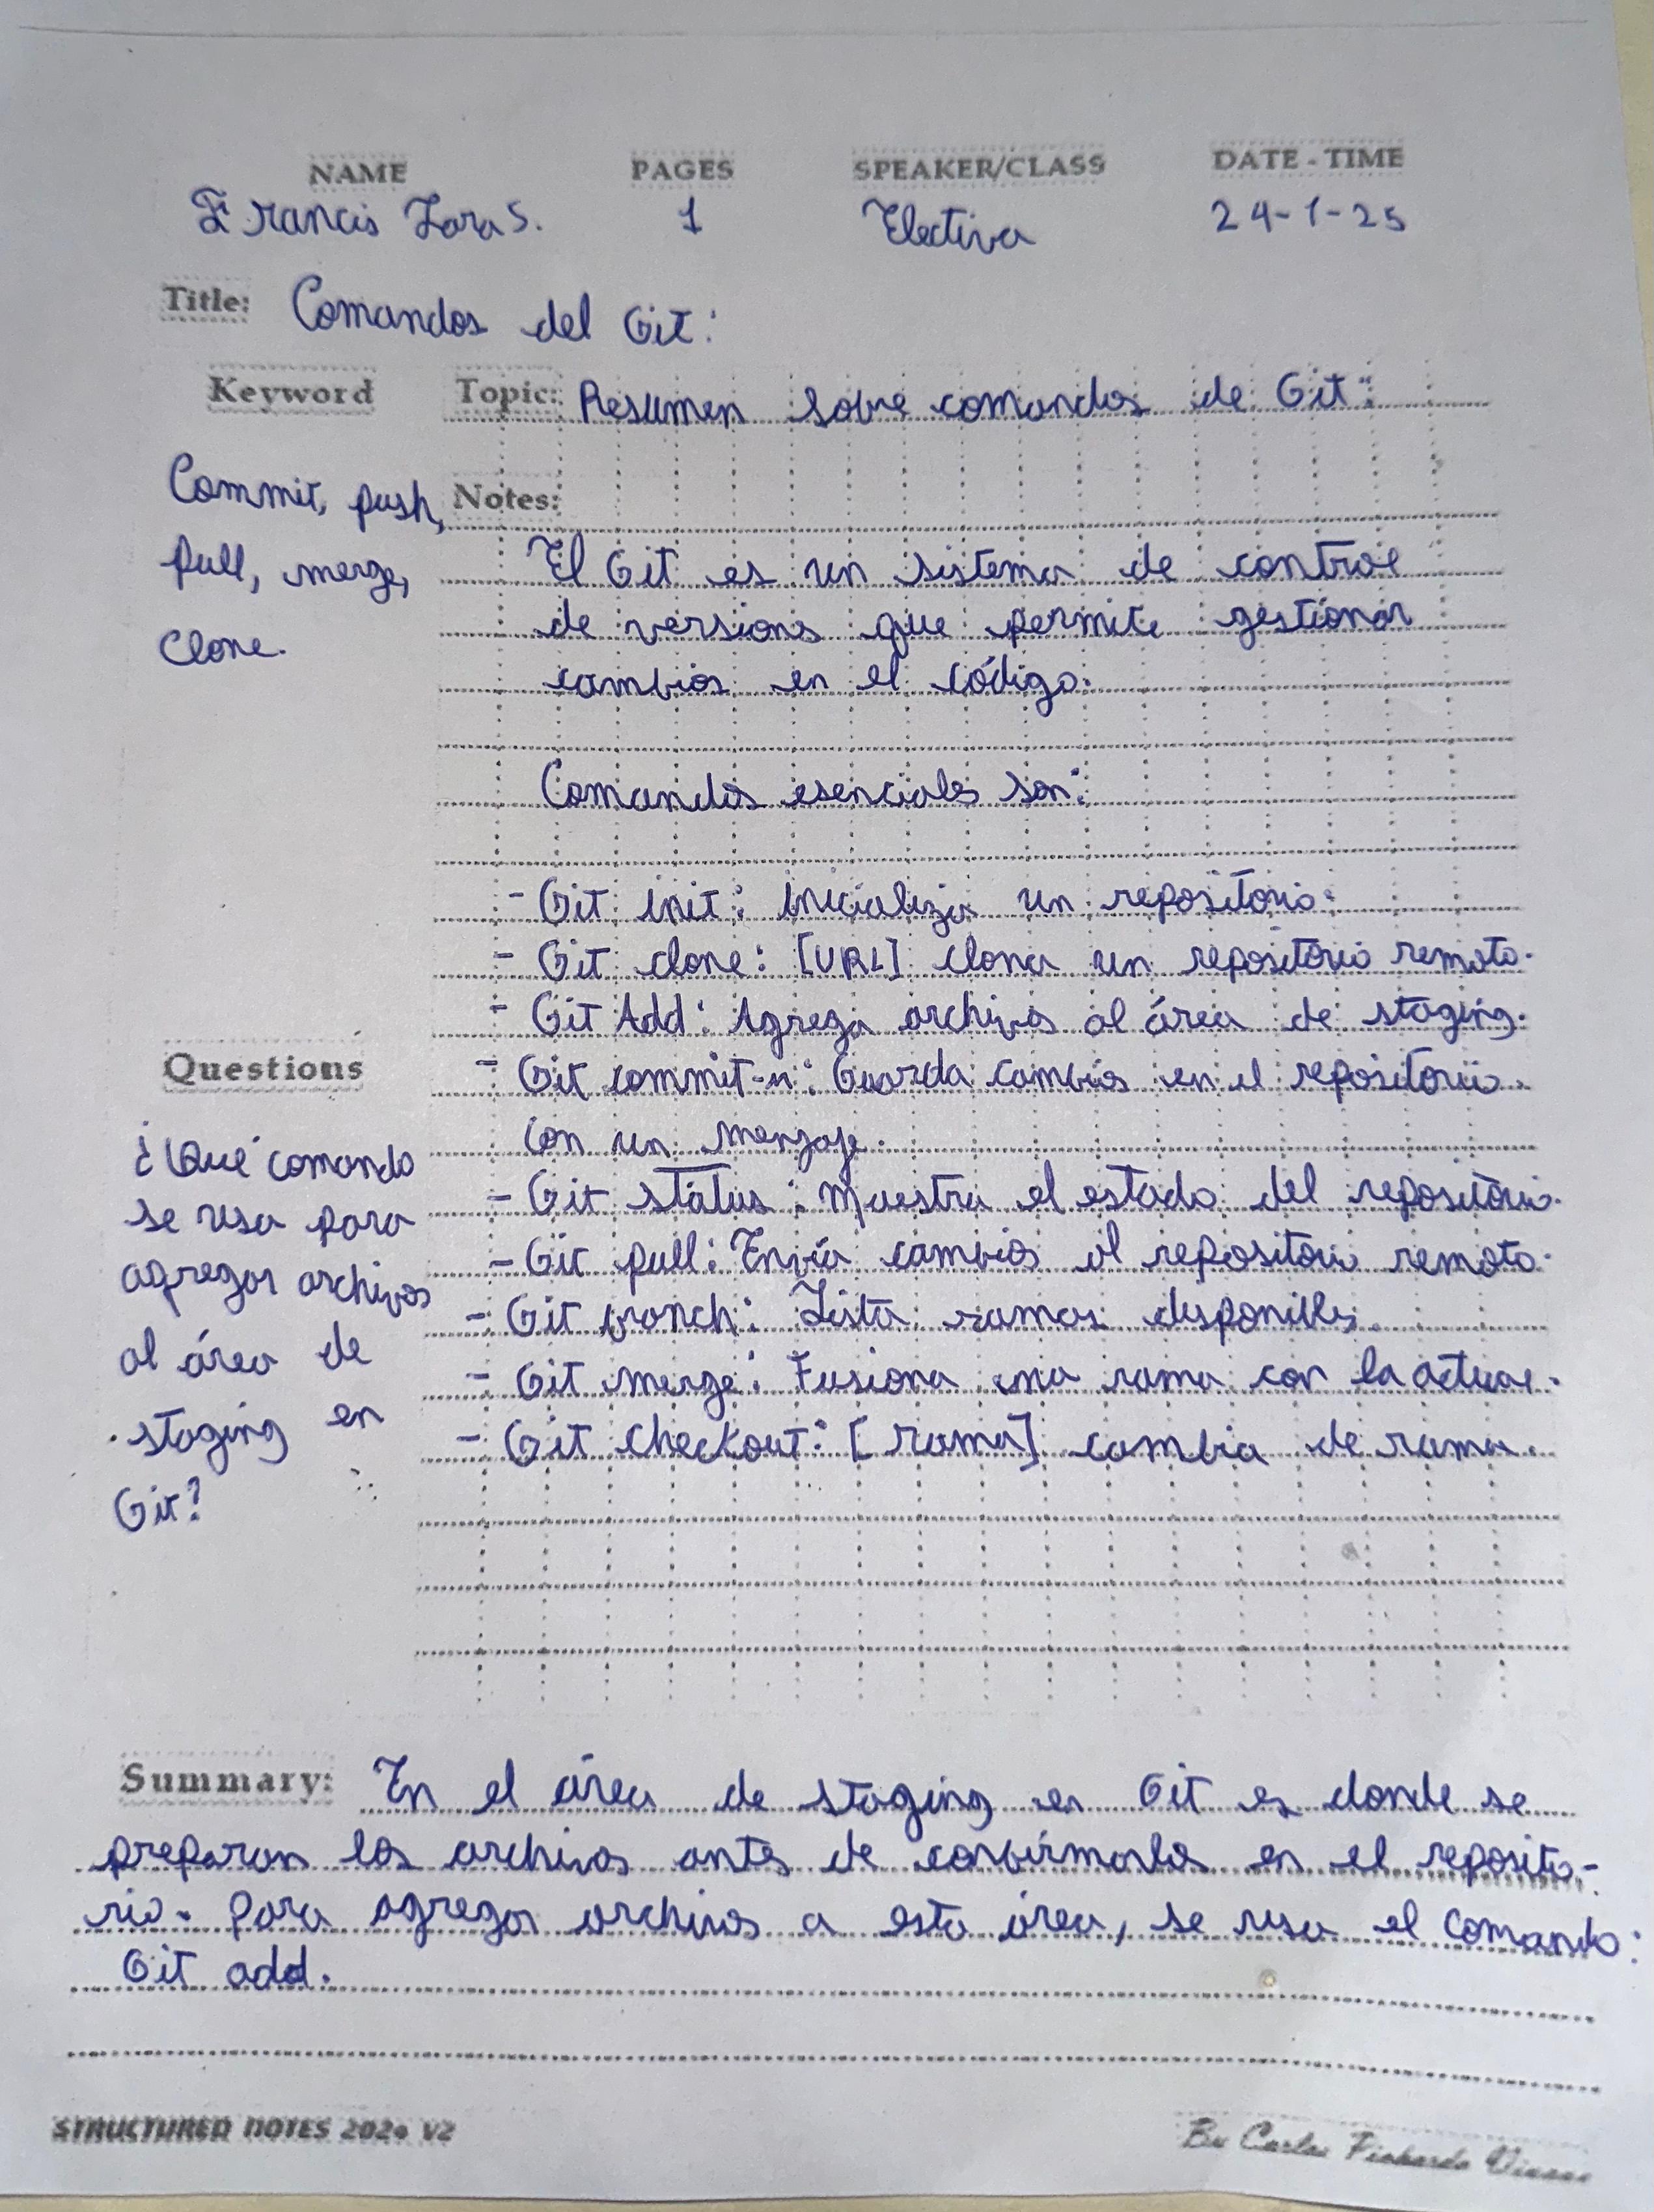 NAME PAGES SPEAKER/CLASS DATE - TIME
Francis Lara S. 1 Electiva 24-1-25
Title: Comandos del Git:
Keyword
Commit, push,
pull, merge,
clone.
Topic: Resumen sobre comandos de Git:
Notes:
El Git es un sistema de control
de versions que permite gestionar
cambios en el código.
Comandos esenciales son:
- Git init: Inicializa un repositorio.
- Git clone: [URL] clona un repositorio remoto.
- Git Add: Agrega archivos al área de staging.
- Git commit-n: Guarda cambios en el repositorio.
con un mensaje.
- Git status: Muestra el estado del repositorio.
- Git pull: Envía cambios al repositorio remoto.
- Git branch: Lista ramas disponibles.
- Git merge: Fusiona una rama con la actual.
- Git checkout: [rama] cambia de rama.
Questions
¿Qué comando
se usa para
agregar archivos
al área de
staging en
Git?
Summary: En el área de staging en Git es donde se
preparan los archivos antes de confirmarlos en el reposito-
rio. Para agregar archivos a esta área, se usa el comando:
Git add.
STRUCTURED NOTES 2024 V2
By Carlos Pichardo